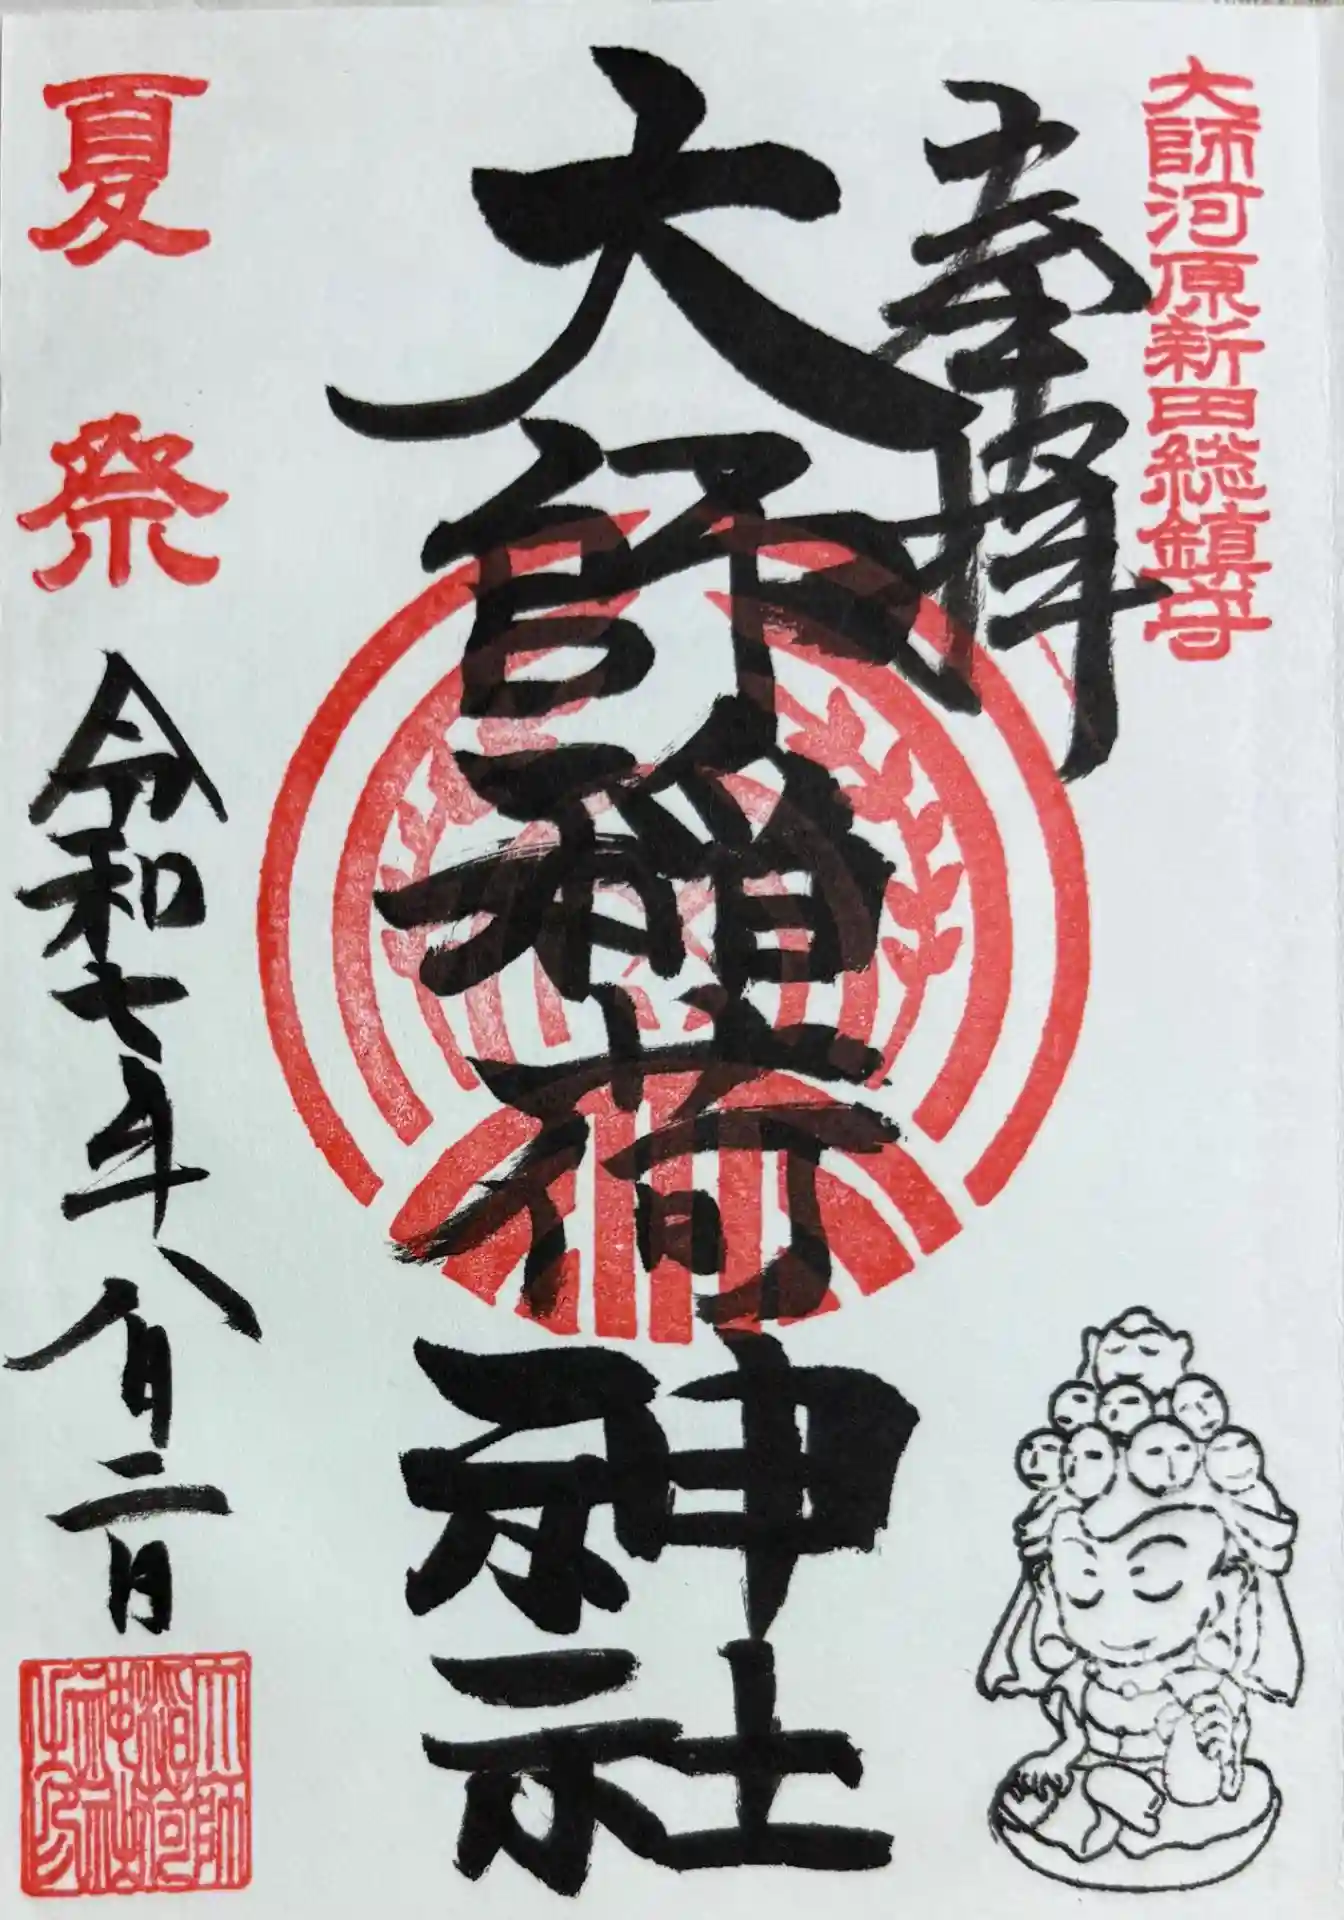 大師河原新田総鎮守
奉拝
大師稲荷神社
夏祭
令和七年八月二日
大師
稲荷
神社